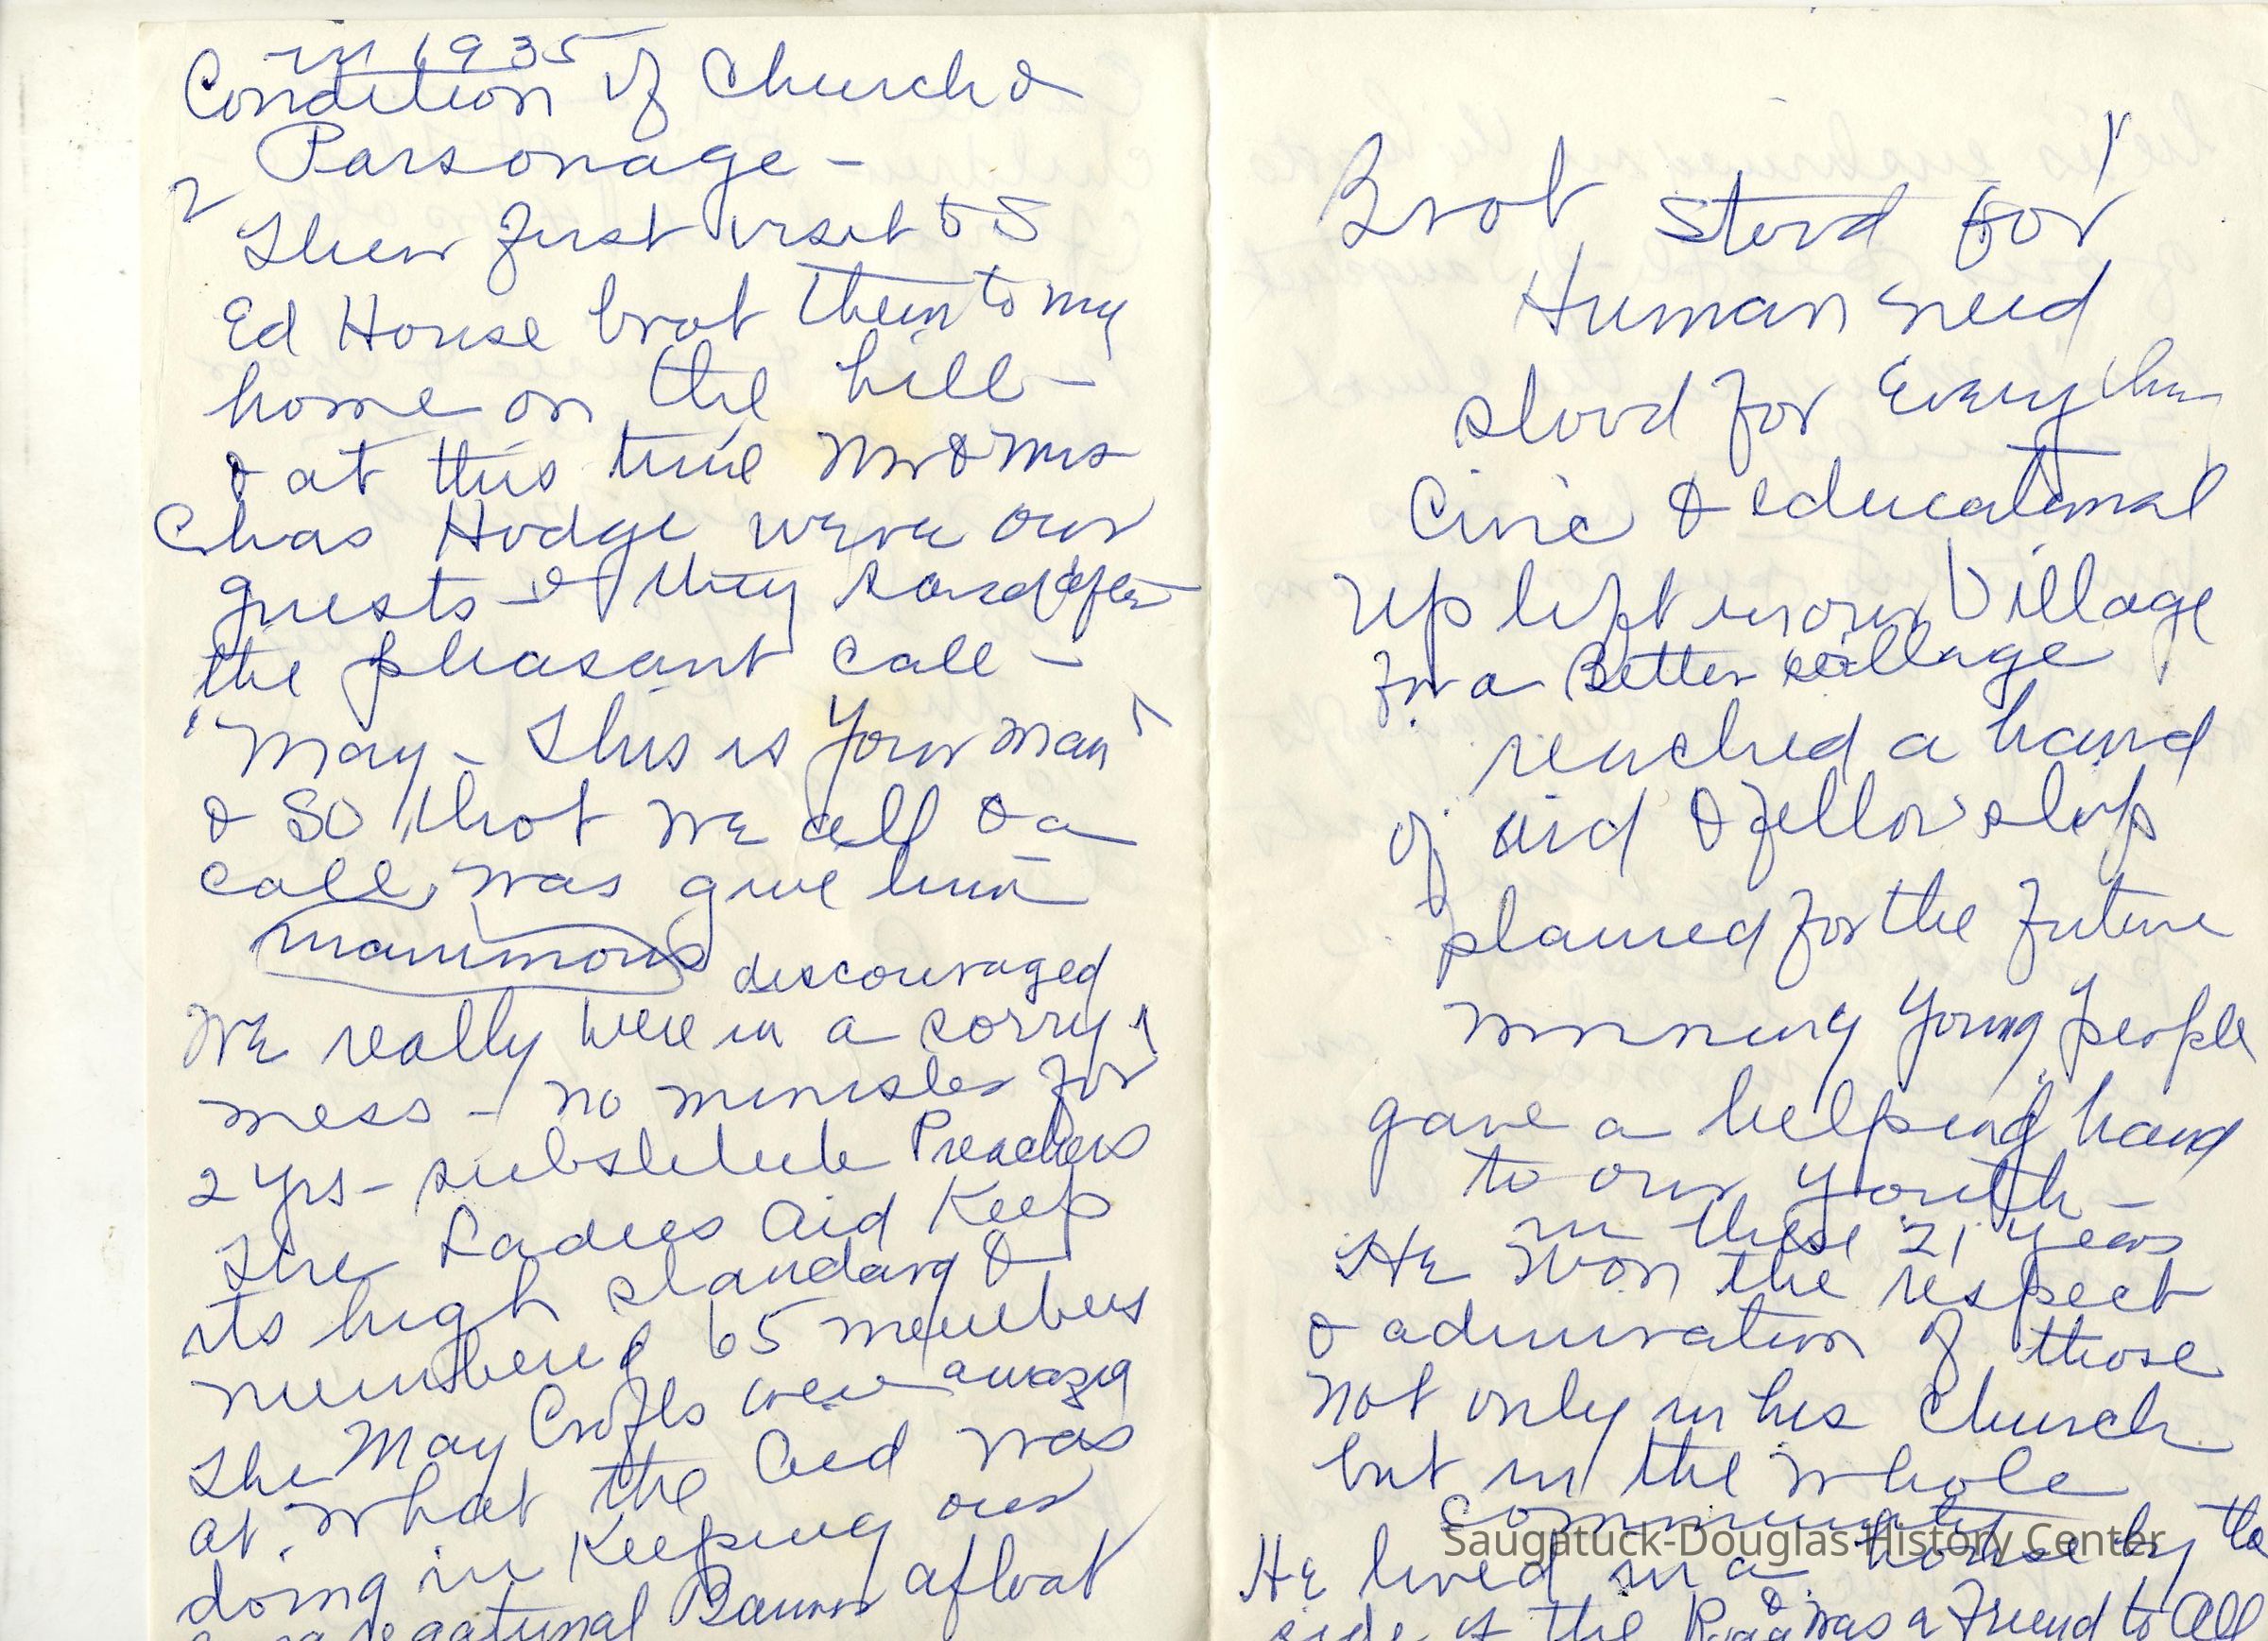 in 1935
Condition of Church &
Parsonage -
2
Their first visit to S
Ed House brot them to my
home on the hill -
& at this time Mr & Mrs
Chas Hodge were our
guests - & they said after
the pleasant call -
"May - This is your man"
& so thot we all & a
call, was give him
unanimous discouraged
We really were in a sorry
mess - no minister for
2 yrs - substitute Preachers
The Ladies Aid Keep
its high standard &
numbered 65 members
The May Crofts were amazed
at what the Aid was
doing in Keeping our
Congregational Banner afloat
Brot
stood for
Human need
stood for Every
Civic & educational
Up lift in our Village
for a Better village
reached a hand
of aid & fellowship
planned for the future
winning Young People
gave a helping hand
to our youth -
in these 21 years
He won the respect
& admiration of those
not only in his Church
but in the whole
community
He lived in a house by the
side of the Road & was a Friend to All
Saugatuck-Douglas History Center